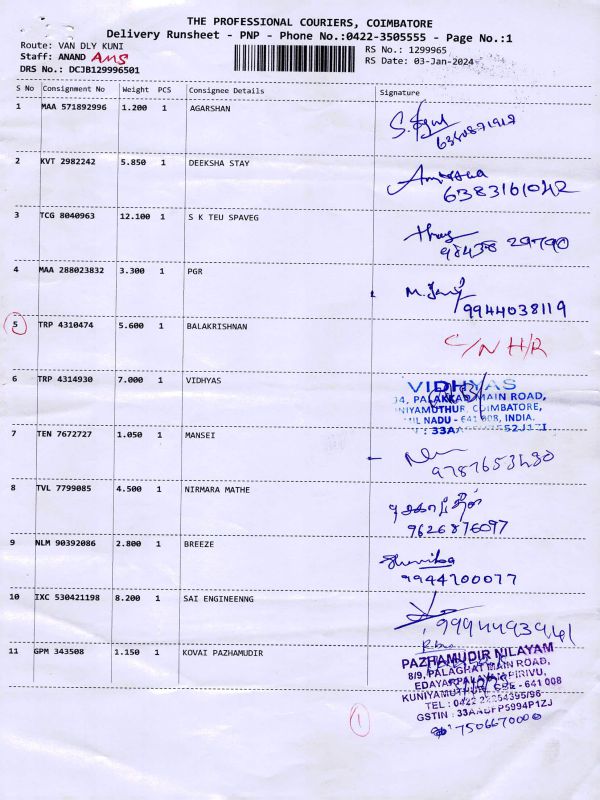 THE PROFESSIONAL COURIERS, COIMBATORE
Delivery Runsheet - PNP - Phone No.:0422-3505555 - Page No.:1
Route: VAN DLY KUNI RS No.: 1299965
Staff: ANAND RS Date: 03-Jan-2024
DRS No.: DCJB129996501
S No Consignment No Weight PCS Consignee Details Signature
1 MAA 571892996 1.200 1 AGARSHAN
2 KVT 2982242 5.850 1 DEEKSHA STAY
6383161042
3 TCG 8040963 12.100 1 S K TEU SPAVEG
98438 29790
4 MAA 288023832 3.300 1 PGR
9944038119
5 TRP 4310474 5.600 1 BALAKRISHNAN C/N H/R
6 TRP 4314930 7.000 1 VIDHYAS VIDHYAS
PALAKKAD MAIN ROAD,
COIMBATORE,
NADU - 641 008, INDIA.
7 TEN 7672727 1.050 1 MANSEI
9787653480
8 TVL 7799085 4.500 1 NIRMARA MATHE
9626876097
9 NLM 90392086 2.800 1 BREEZE
9944200077
10 IXC 530421198 8.200 1 SAI ENGINEENNG
11 GPM 343508 1.150 1 KOVAI PAZHAMUDIR
PAZHAMUDIR NILAYAM
8/9, PALAGHAT MAIN ROAD,
KUNIYAMUTHUR, CBE - 641 008
TEL : 0422 2254395/96
GSTIN : 33AADFP5994P1ZJ
7506670000
1